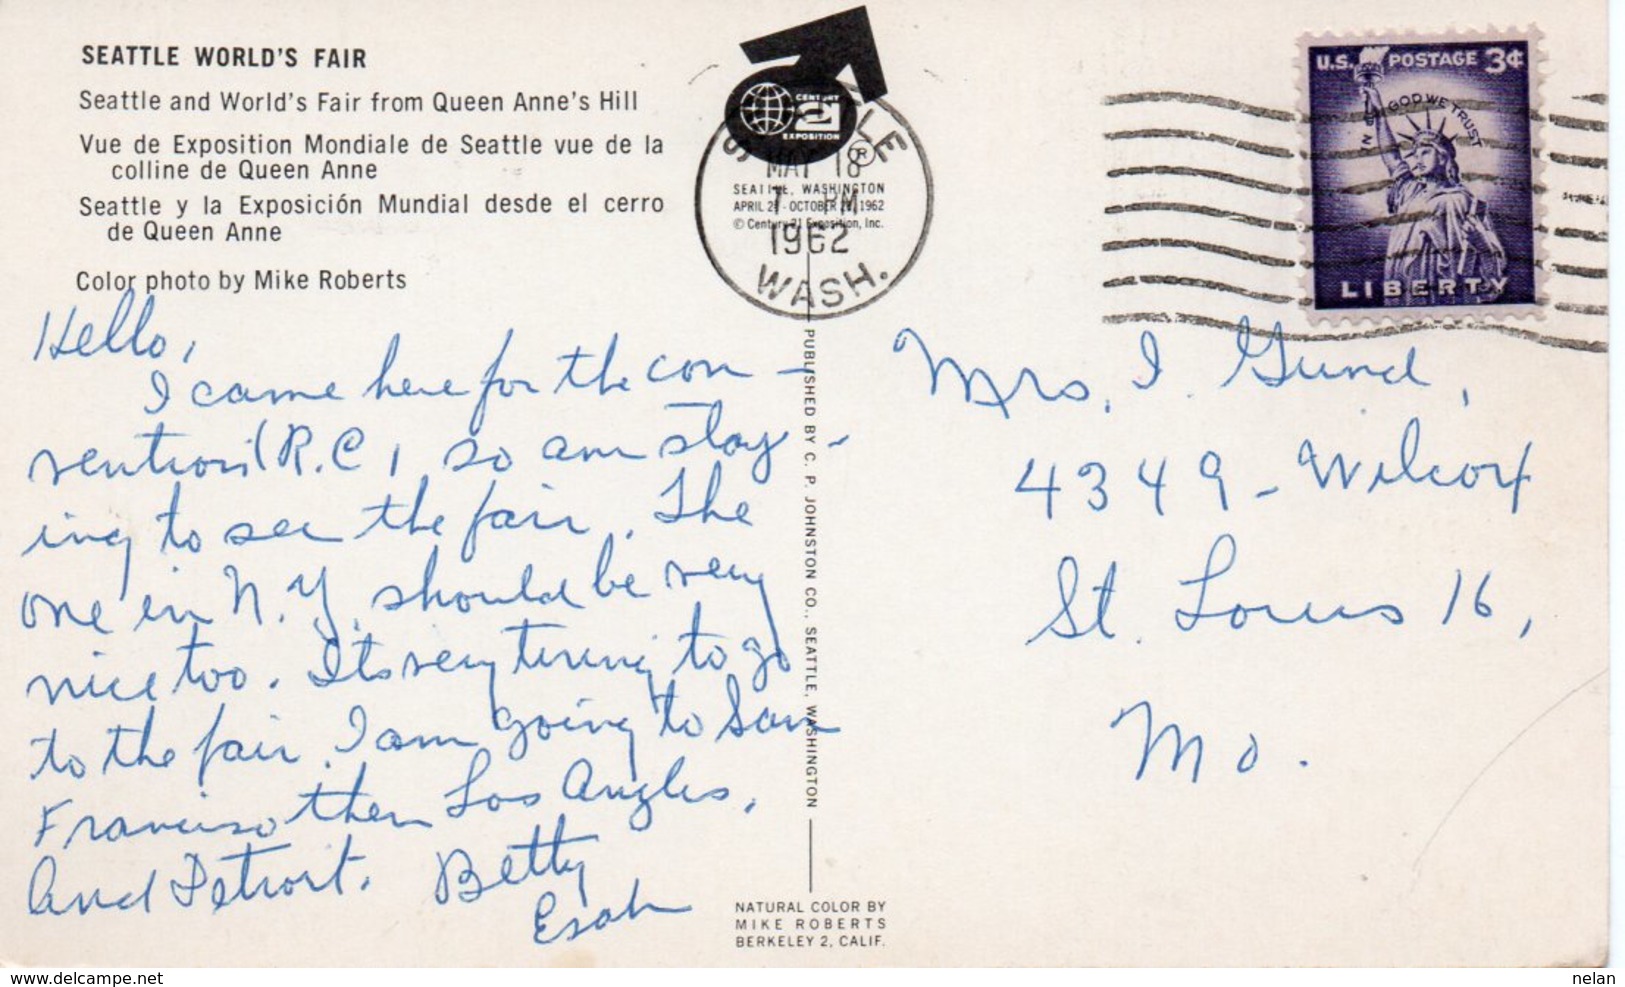 SEATTLE WORLD'S FAIR
Seattle and World's Fair from Queen Anne's Hill
Vue de Exposition Mondiale de Seattle vue de la
colline de Queen Anne
Seattle y la Exposición Mundial desde el cerro
de Queen Anne
Color photo by Mike Roberts
CENTURY
21
EXPOSITION
®
SEATTLE, WASHINGTON
APRIL 21 - OCTOBER 21, 1962
© Century 21 Exposition, Inc.
SEATTLE
MAY 18
PM
1962
WASH.
U.S. POSTAGE 3¢
IN GOD WE TRUST
LIBERTY
Hello,
I came here for the con-
vention (R.C, so am stay-
ing to see the fair. The
one in N.Y. should be very
nice too. Its very tiring to go
to the fair. I am going to San
Francisco then Los Angles,
and Detroit. Betty
Esah
Mrs. I. Gund,
4349 - Wilcox
St. Louis 16,
Mo.
PUBLISHED BY C. P. JOHNSTON CO., SEATTLE, WASHINGTON
NATURAL COLOR BY
MIKE ROBERTS
BERKELEY 2, CALIF.
www.delcampe.net
nelan